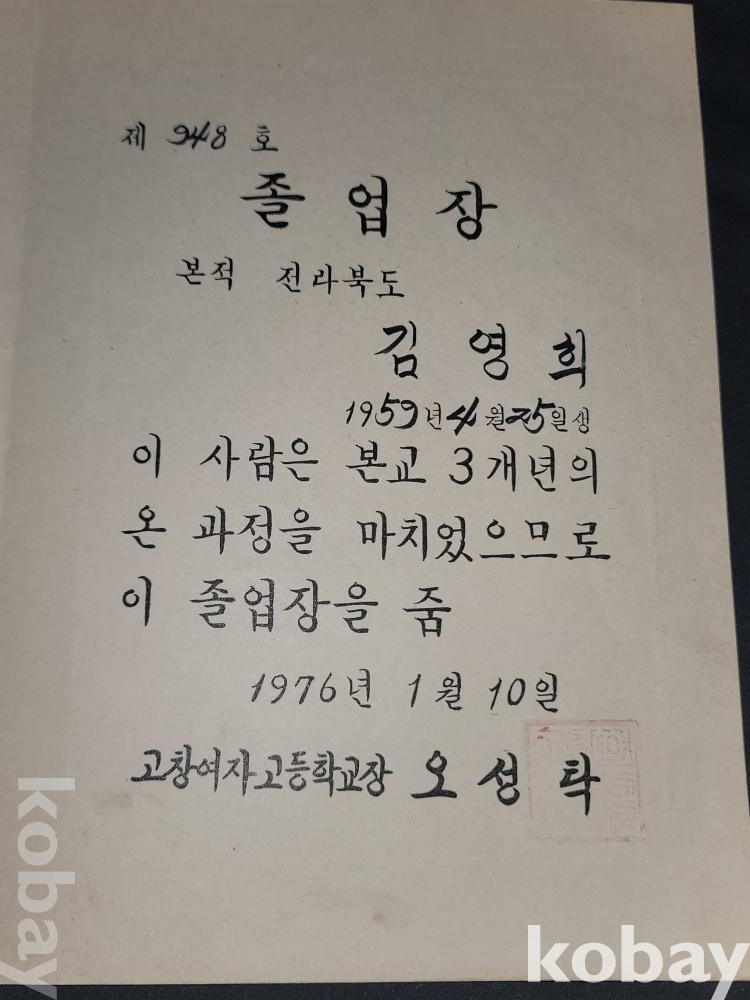 제 948 호
졸 업 장
본적 전라북도
김 영 희
1959년 4월 25일생
이 사람은 본교 3개년의
온 과정을 마치었으므로
이 졸업장을 줌
1976년 1월 10일
고창여자고등학교장 오성탁
kobay
kobay